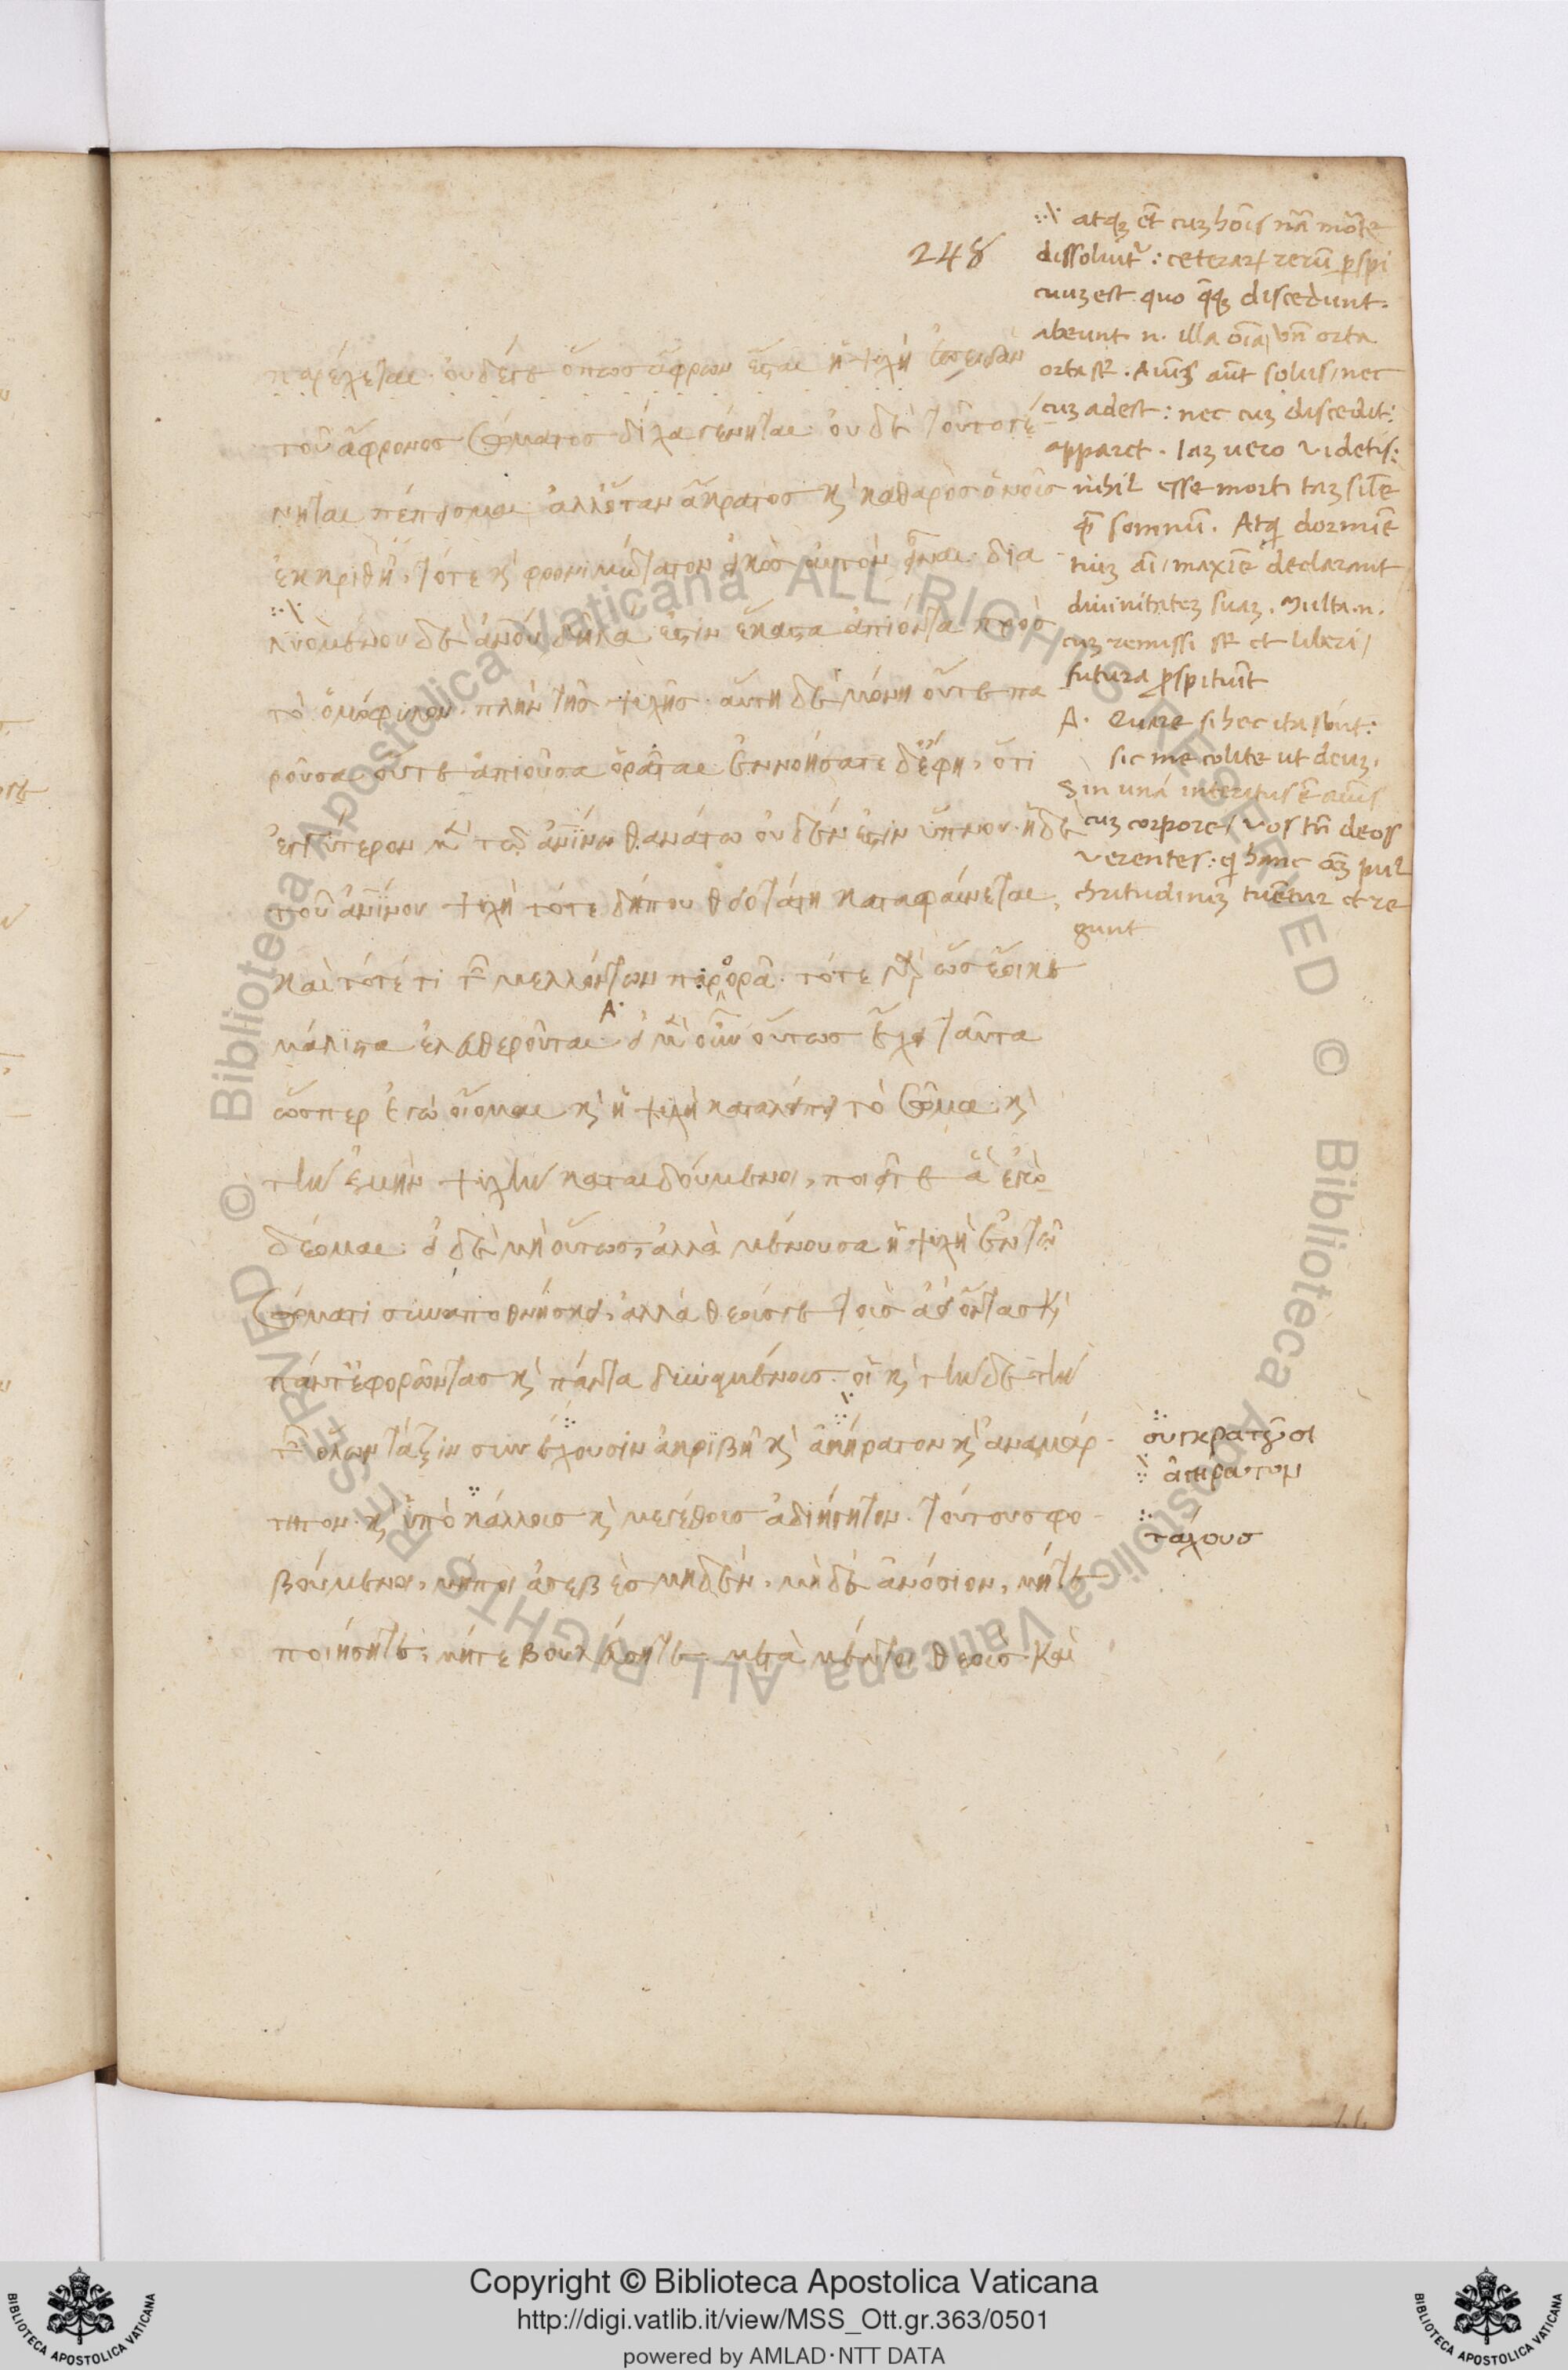 248
παρέχεται. οὐδέγε ὅπως ἄφρων ἔσται ἡ ψυχή ἐπειδὰν
τοῦ ἄφρονος σώματος δίχα γένηται οὐδὲ τοῦτο πέ
πέπεισμαι. ἀλλ' ὅταν ἄκρατος κ̀ καθαρὸς ὁ νοῦς
ἐκκριθῇ, τότε κ̀ φρονιμώτατον εἰκὸς αὐτὸν εἶναι. δια
λυομένου δὲ ἀνοῦ δῆλά ἐστιν ἕκαστα ἀπιόντα πρὸς
τὸ ὁμόφυλον. πλὴν τῆς ψυχῆς. αὕτη δὲ μόνη οὔτε πα
ροῦσα οὔτε ἀπιοῦσα ὁρᾶται. ἐννοήσατε δέ ἔφη, ὅτι
ἐγγύτερον μὲν τῶ ἀνίνω θανάτω οὐδέν ἐστιν ὕπνου. ἡ δὲ
τοῦ ἀνίνου ψυχὴ τότε δήπου θειοτάτη καταφαίνεται,
καὶ τότέ τι τῶν μελλόντων προορᾶ. τότε γὰρ ὡς ἔοικε
μάλιστα ἐλευθεροῦται. εἰ μὲν οὖν οὕτως ἔχει ταῦτα
ὥσπερ ἐγώ οἴομαι κ̀ ἡ ψυχὴ καταλείπει τὸ σῶμα. κ̀
τὴν ἐμὴν ψυχὴν καταιδούμενοι, ποιεῖτε ἃ ἐγὼ
δέομαι. εἰ δὲ μὴ οὕτως, ἀλλὰ μένουσα ἡ ψυχὴ ἐν τῶ
σώματι συναποθνήσκει, ἀλλὰ θεούς γε τοὺς ἀεὶ ὄντας κ̀
πάντ' ἐφορῶντας κ̀ πάντα δυναμένους. οἳ κ̀ τὴν δὲ τὴν
τῶν ὅλων τάξιν συνέχουσιν ἀκριβῆ κ̀ ἀκήρατον κ̀ ἀναμάρ-
τητον. κ̀ ὑπὸ κάλλους κ̀ μεγέθους ἀδιήγητον. τούτους φο-
βούμενοι, μήποτ' ἀσεβὲς μηδὲν, μὴδὲ ἀνόσιον, μήτε
ποιήσητε, μήτε βουλεύσητε. μετὰ μέντοι θεοὺς. καὶ
atqz et cuz hois nã morte
dissoluit᷑: ceterarꝝ rerũ pspi
cuuz est quo qqz discedunt.
abeunt n. illa oĩa, vñ orta
orta st̃. Aniɜ aũt solus, nec
cuz adest: nec cuz discedit:
apparet. Iaz uero videtis:
nihil esse morti taz sile
q̃ somnũ. Atq dormiẽ
tiuz aĩ, maxĩe declarant
diuinitatez suaz. Multa .n.
cuz remissi st̃ et liberi,
futura pspitiũt
A. Quare si hec ita sunt:
sic me colite ut deuz.
Sin una interiturus ẽ aĩus
cuz corpore, vos tñ deos
verentes: q hanc oẽz pul
chritudinẽ tuẽtur et re
gunt
συγκρατοῦσι
ἀγήρατον
τάχους